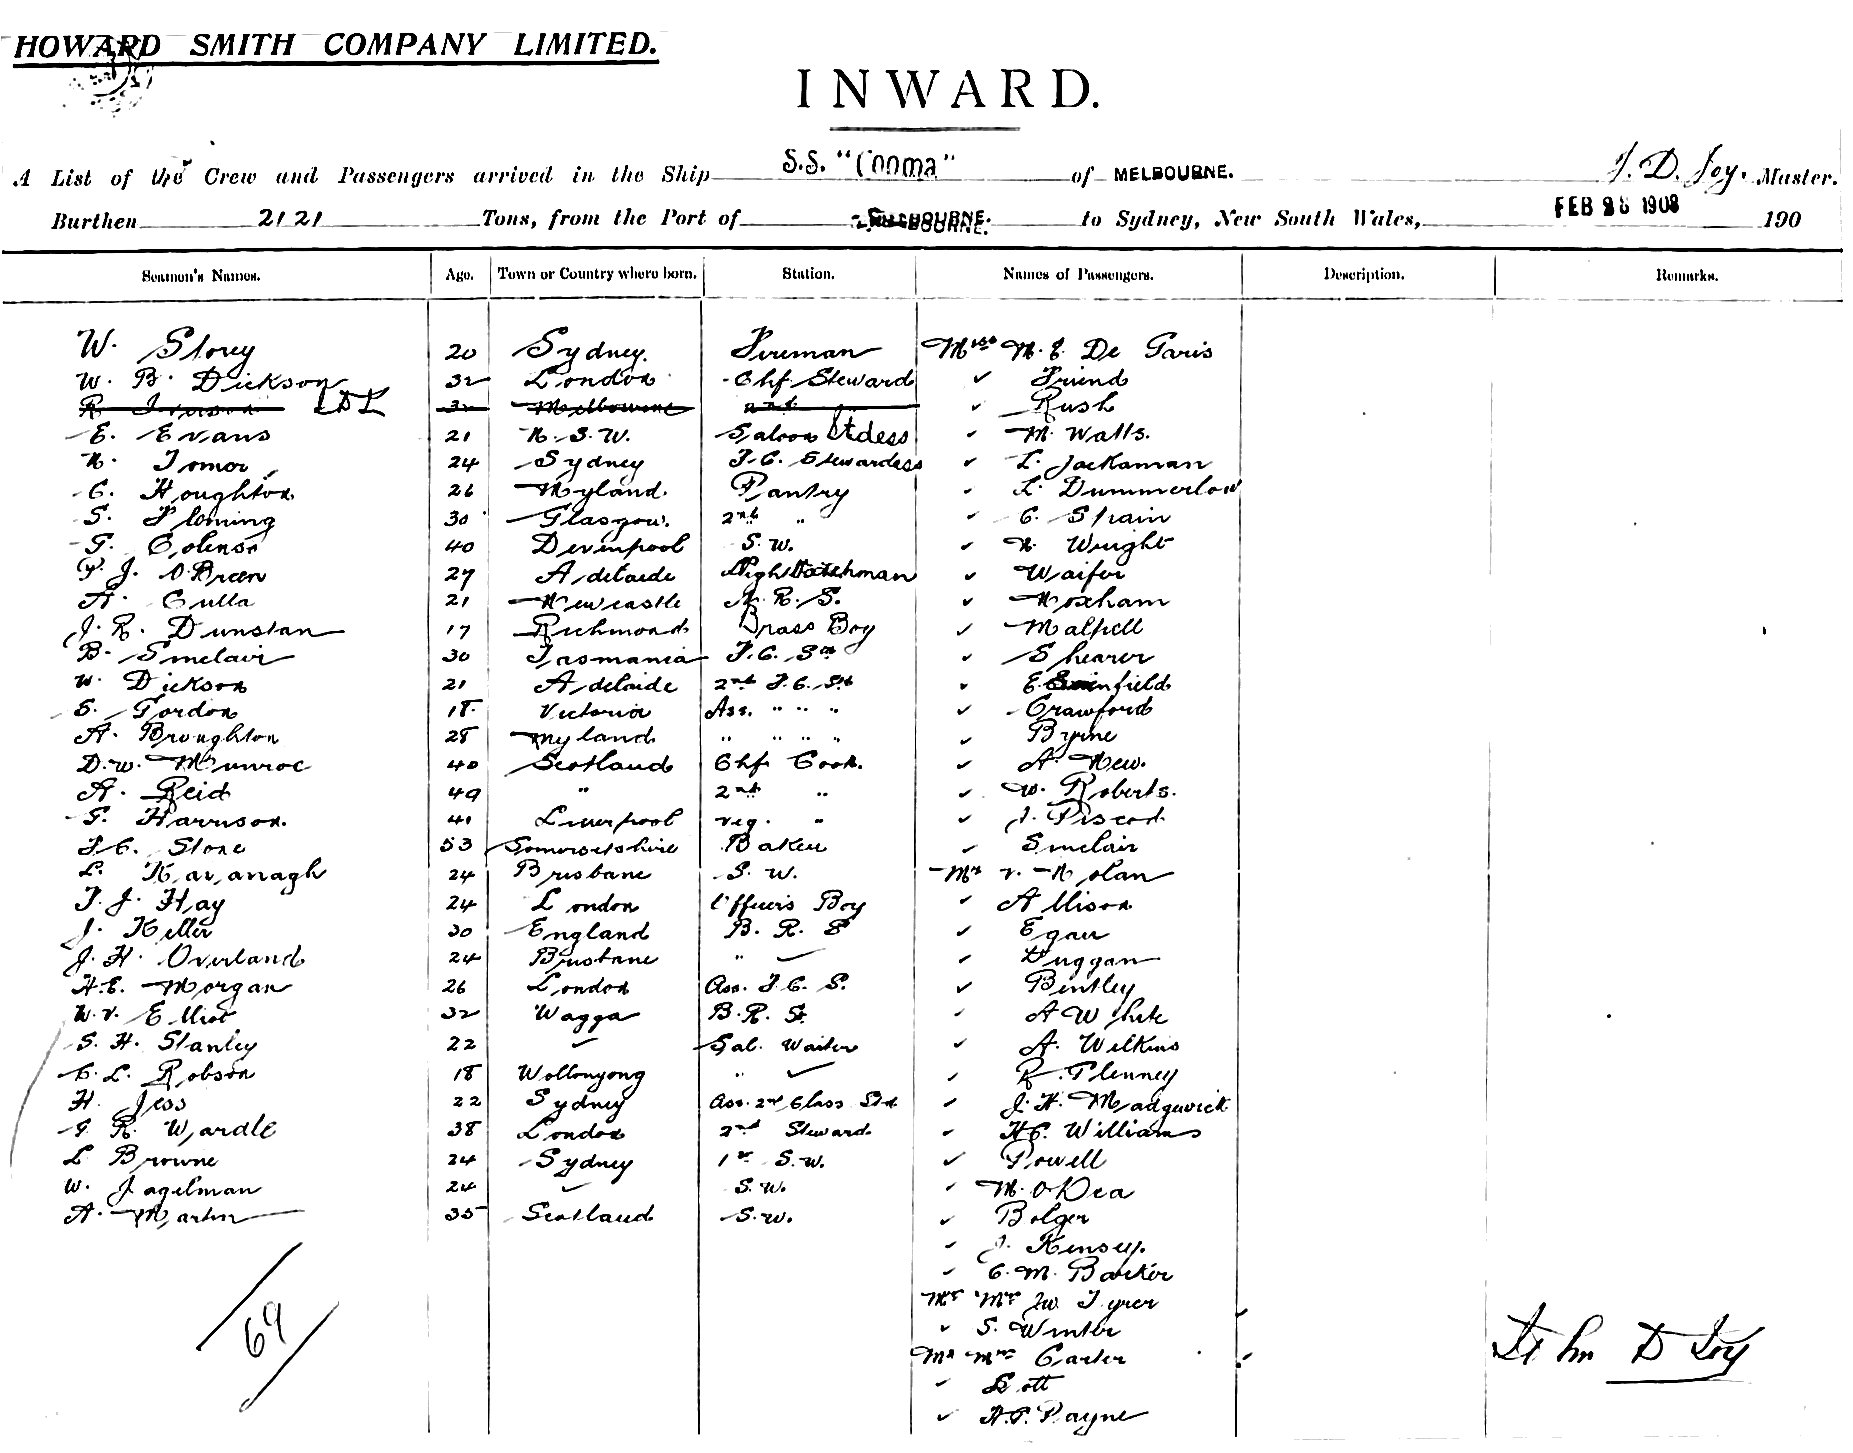 HOWARD SMITH COMPANY LIMITED.
INWARD.
A List of the Crew and Passengers arrived in the Ship S.S. "Cooma" of MELBOURNE. J. D. Joy. Master.
Burthen 2121 Tons, from the Port of MELBOURNE. to Sydney, New South Wales, FEB 1908 190
Seamen's Names. Age. Town or Country where born. Station. Names of Passengers. Description. Remarks.
W. Storey 20 Sydney. Fireman Miss M. E. De Garis
W. B. Dickson 32 London Chf Steward ✓ Friend
R Iverson 32 Melbourne 2nd ✓ Rush
E. Evans 21 N. S. W. Saloon Stdess ✓ M. Watts.
24 Sydney F. C. Stewardess ✓ L. Jackaman
C. Houghton 26 Myland. Pantry ✓ L. Dummerlow
S. Fleming 30 Glasgow. 2nd " ✓ C. Spain
G. Colenso 40 Devenpool S. W. ✓ N. Wright
P. J. O'Breen 27 Adelaide Night Watchman ✓ Waifer
A. Culla 21 Newcastle N. R. S. ✓ Moxham
J. R. Dunstan 17 Richmond Brass Boy ✓ Malpell
B. Sinclair 30 Tasmania F. C. ✓ Shearer
W. Dickson 21 Adelaide 2nd F. C. St ✓ E.
S. Gordon 18 Victoria Ass. " " " ✓ Crawford
A. Broughton 28 Myland " " " " ✓ Byrne
D. W. Munroe 40 Scotland Chf Cook. ✓ A. New.
A. Reid 49 " 2nd " ✓ W. Roberts.
G. Harrison. 41 Liverpool veg. " ✓ J. Piscod
F. C. Stone 53 Somersetshire Baker ✓ Sinclair
L. Kavanagh 24 Brisbane S. W. Mr V. Nolan
T. J. Hay 24 London Officers Boy ✓ Allison
J. Keller 30 England B. R. S ✓ Egan
J. H. Overland 24 Brisbane " ✓ ✓ Duggan
H. E. Morgan 26 London Ass. F. C. S. ✓ Bentley
W. V. Elliot 32 Wagga B. R. St. ✓ A White
S. H. Stanley 22 ✓ Sal. Waiter ✓ A. Wilkins
C. L. Robson 18 Wollongong " ✓ ✓ R. Glenney
H. Jess 22 Sydney Ass. 2nd Class Std ✓ J. H. Madgwick
G R. Wardle 38 London 2nd Steward ✓ H C. Williams
L Browne 24 Sydney 1st S. W. ✓ Powell
W. Jagelman 24 ✓ S. W. ✓ M. O'Dea
A. Martin 35 Scotland S. W. ✓ Bolger
✓ J. Kensey.
✓ C. M. Barker
Mr Mrs Jw Tyrer
✓ S. Winter
Mr Mrs Carter
✓ Scott
✓ A. P. Payne
69
John D Joy